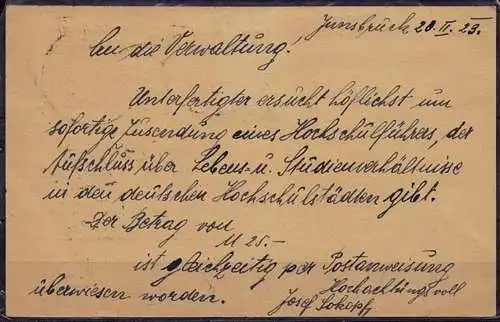 Innsbruck, 20.II.23.
An die Verwaltung!
Unterfertigter ersucht höflichst um
sofortige Zusendung eines Hochschulführers, der
Aufschluss über Lebens- u. Studienverhältnisse
in den deutschen Hochschulstädten gibt.
Der Betrag von
M 25.-
ist gleichzeitig per Postanweisung
überwiesen worden.
Hochachtungsvoll
Josef